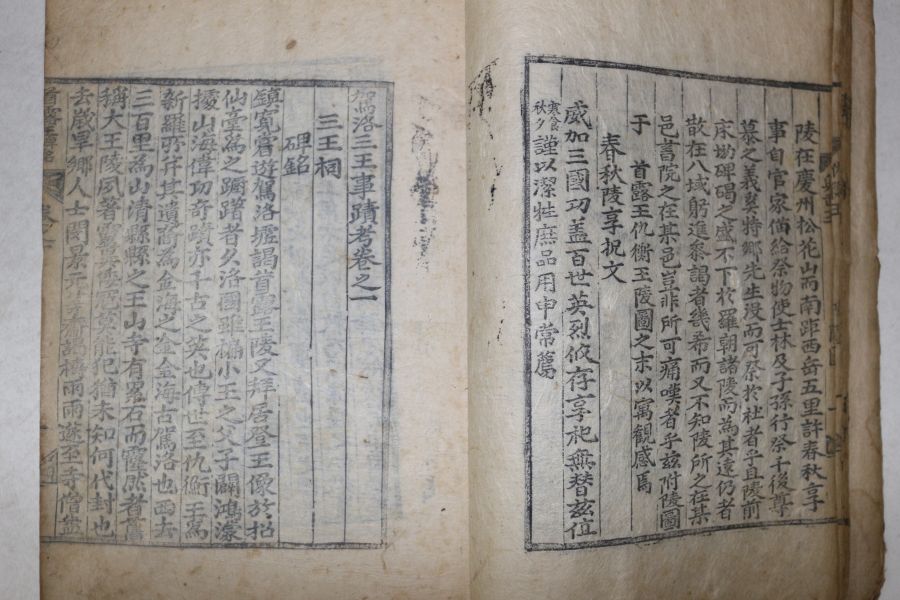 陵在慶州松花山而南距西岳五里許春秋享
事自官家備給祭物使士林及子孫行祭千後尊
慕之義夐特鄉先生没而可祭於社者乎且陵前
床坳碑碣之盛不下於羅朝諸陵而為其遠仍者
散在八域躬進參謁者幾希而又不知陵所之在某
邑書院之在某邑豈非所可痛嘆者乎玆附陵圖
于 首露王仇衡王陵圖之末以寓觀感焉
春秋陵享祝文
威加三國功盖百世英烈攸存享祀無替玆值
寒食秋夕謹以潔牲庶品用申常薦
駕洛三王事蹟考卷之一
三王祠
碑銘
鎮寬嘗遊駕洛墟謁首露王陵又拜居登王像於招
仙臺為之躕躇者久洛國雖褊小王之父子闢鴻濛
據山海偉功奇蹟亦千古之英也傳世至仇衝王為
新羅所并其遺裔為金海之金金海古駕洛也西去
三百里為山清縣縣之王山寺有累石而靈應者舊
稱大王陵夙著靈
犯猶未知何代封也
去歲旱鄉人士閔景元
禱雨雨遂至寺僧